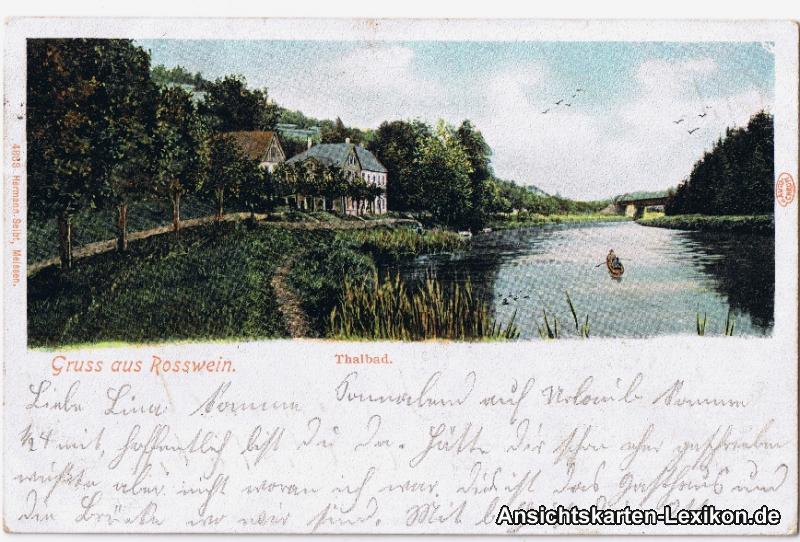 4868 Hermann Seibt, Meissen.
Gruss aus Rosswein.
Thalbad.
Liebe Lina Komme Sonnabend auf Urlaub Komme
1/2 4 mit, hoffentlich bist du da. Hätte dir schon eher geschrieben
wußte aber nicht woran ich war. dies ist das Gasthaus und
die Brücke wo wir sind. Mit
Ansichtskarten-Lexikon.de